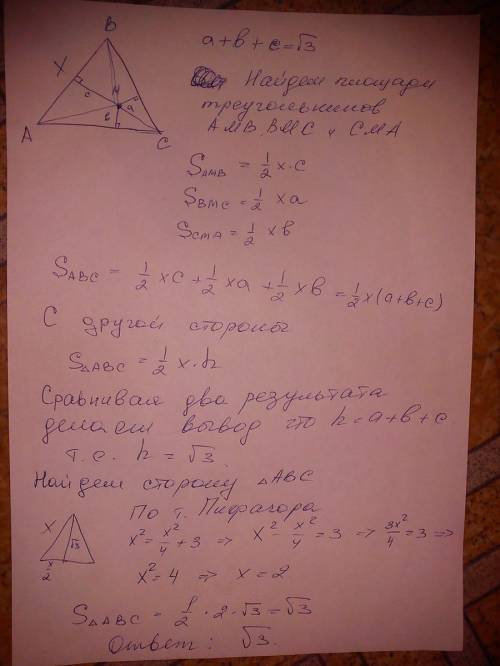 B
a + в + c = √3
X
Найдем площади
M
треугольников
c
a
в
AMB, BMC и CMA
A
C
S_AMB = 1/2 x · c
S_BMC = 1/2 xa
S_CMA = 1/2 xв
S_ABC = 1/2 xc + 1/2 xa + 1/2 xв = 1/2 x(a+в+c)
С другой стороны
S_△ABC = 1/2 x · h
Сравнивая два результата
делаем вывод что h = a+в+c
т.е. h = √3.
Найдем сторону △ABC
По т. Пифагора
X
√3
x/2
x² = x²/4 + 3 => x² - x²/4 = 3 => 3x²/4 = 3 =>
x² = 4 => x = 2
S_△ABC = 1/2 · 2 · √3 = √3
Ответ: √3.